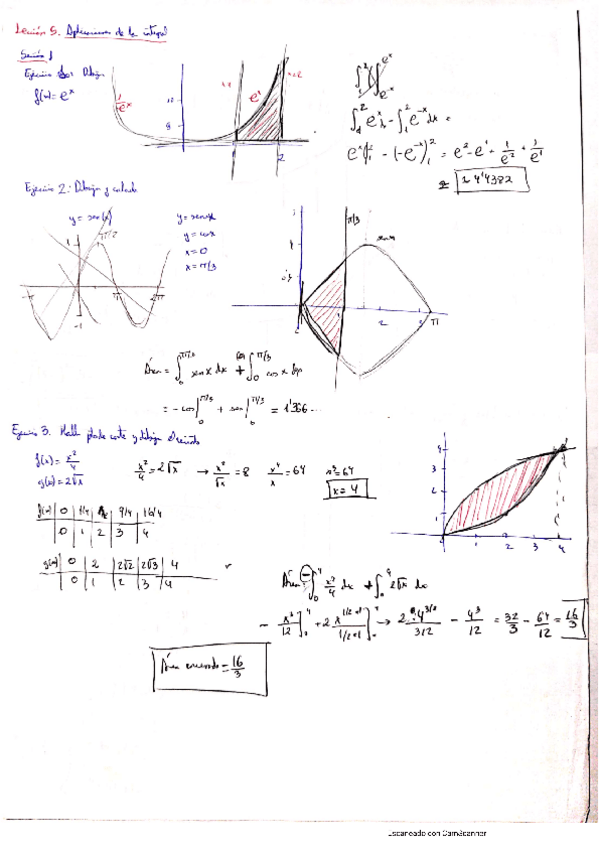 Lección 5. Aplicaciones de la integral
Sesión 1
Ejercicio Dibujo
f(x) = e^x
1/e^x
e^x
x=1
x=2
1
2
∫₁² e^x dx - ∫₁² e^-x dx =
e^x|₁² - (-e^-x)₁² = e² - e¹ + 1/e² + 1/e¹
≈ 4'4382
Ejercicio 2: Dibujo y calcula
y = sen(x)
y = senx
y = cosx
x = 0
x = π/3
π/2
1
-π
π
2π
-1
π/3
senx
2
π
Área = ∫₀ sen x dx + ∫₀^π/3 cos x
= - cos|₀ + sen|₀^π/3 = 1'366...
Ejercicio 3. Halla corte y dibuja el recinto
f(x) = x²/4
g(x) = 2√x
x²/4 = 2√x → x²/√x = 8 x⁴/x = 64 x³ = 64
x = 4
f(x) 0 1/4 9/4 16/4
0 1 2 3 4
g(x) 0 2 2√2 2√3 4
0 1 2 3 4
4
3
2
1
0
1 2 3 4
Área - ∫₀⁴ x²/4 dx + ∫₀⁴ 2√x dx
- x³/12]₀⁴ + 2 x^(1/2+1)/(1/2+1)]₀⁴ → 2·4^(3/2)/(3/2) - 4³/12 = 32/3 - 64/12 = 16/3
Área encerrada = 16/3
Escaneado con CamScanner